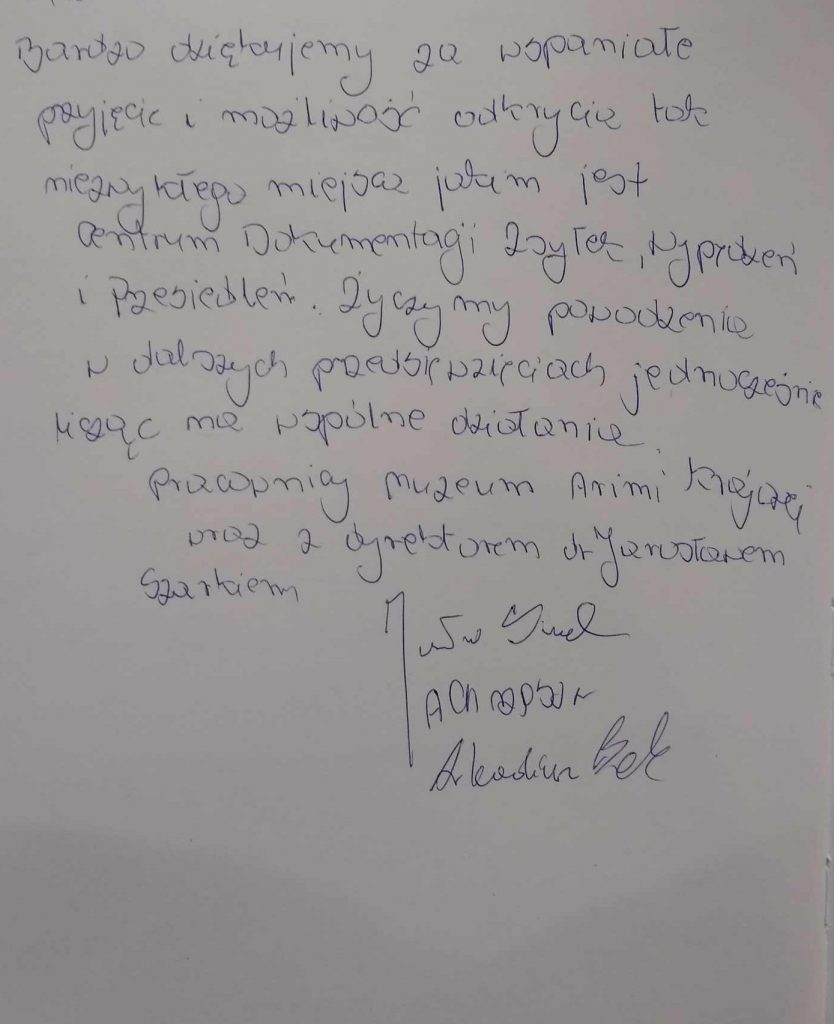 Bardzo dziękujemy za wspaniałe
przyjęcie i możliwość odkrycia tak
niezwykłego miejsca jakim jest
Centrum Dokumentacji Zsyłek, Wypędzeń
i Przesiedleń. Życzymy powodzenia
w dalszych przedsięwzięciach jednocześnie
licząc na wspólne działania.
Pracownicy Muzeum Armii Krajowej
wraz z dyrektorem dr Jarosławem
Szarkiem
Arkadiusz